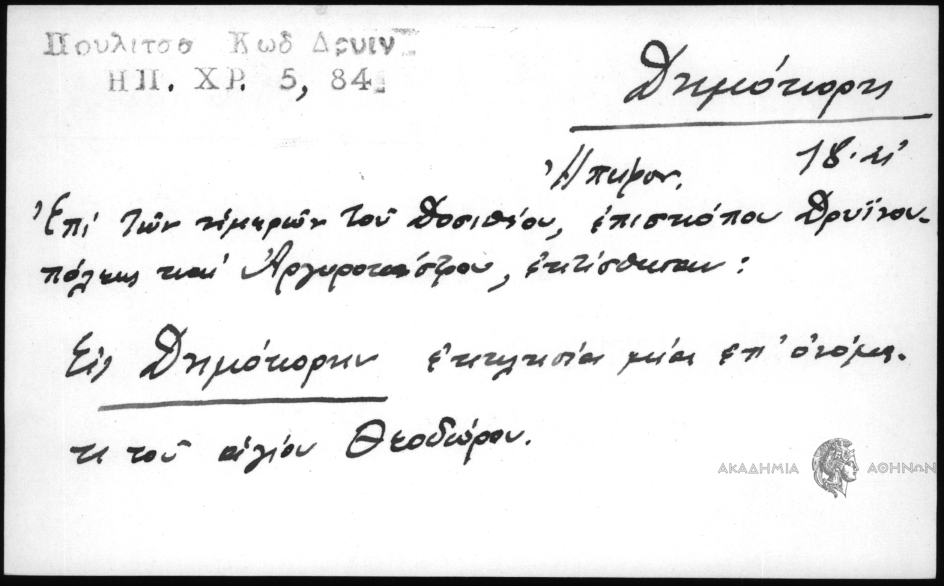 Πουλίτσα Κωδ Δρυϊν
ΗΠ. ΧΡ. 5, 84
Δημόκορη
Ἠπείρου. 18. αἰ
Ἐπί τῶν ἡμερῶν τοῦ Δοσιθέου, ἐπισκόπου Δρυϊνου-
πόλεως καί Ἀργυροκάστρου, ἐκτίσθησαν:
Εἰς Δημόκορην ἐκκλησία μία ἐπ' ὀνόμα-
τι τοῦ ἁγίου Θεοδώρου.
ΑΚΑΔΗΜΙΑ ΑΘΗΝΩΝ